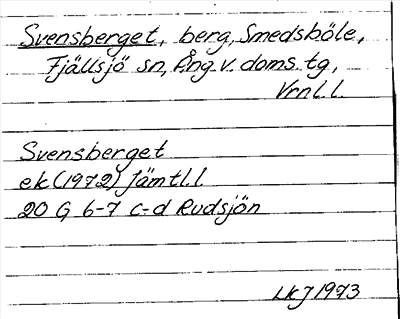 Svensberget, berg, Smedsböle,
Fjällsjö sn, Ång. v. doms. tg,
Vrnl. l.
Svensberget
ek (1972) Jämtl. l
20 G 6-7 c-d Rudsjön
LKJ 1973